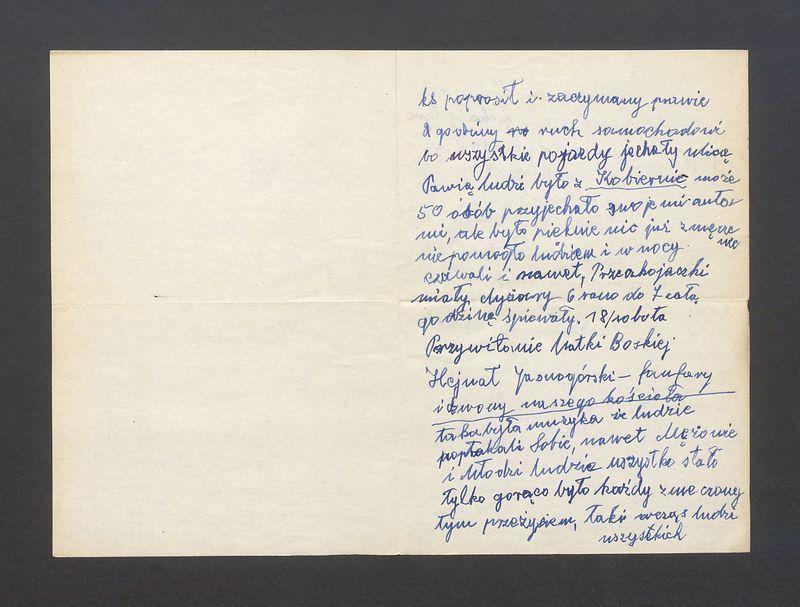 ks poprosił i zaczymany prawie
2 godziny ruch samochodowi
bo wszystkie pojazdy jechały ulicą
Pawią ludzi było z Kobiernic może
50 osób przyjechało swojemi auto-
mi, ale było pięknie nic już zmęcze
nie pomogło ludziem i w nocy nie
czuwali i nawet, Przedskojaczki
miały dyżury 6 rano do 7 całą
godzinę śpiewały. 18/sobota
Przywitanie Matki Boskiej
Hejnał Jasnogórski – fanfary
i dzwony naszego kościoła
taka była muzyka że ludzie
popłakali Sobie, nawet Mężowie
i Młodzi ludzie wszystko stało
tylko gorąco było każdy zmeczony
tym przeżyciem, taki ludzi
wszystkich